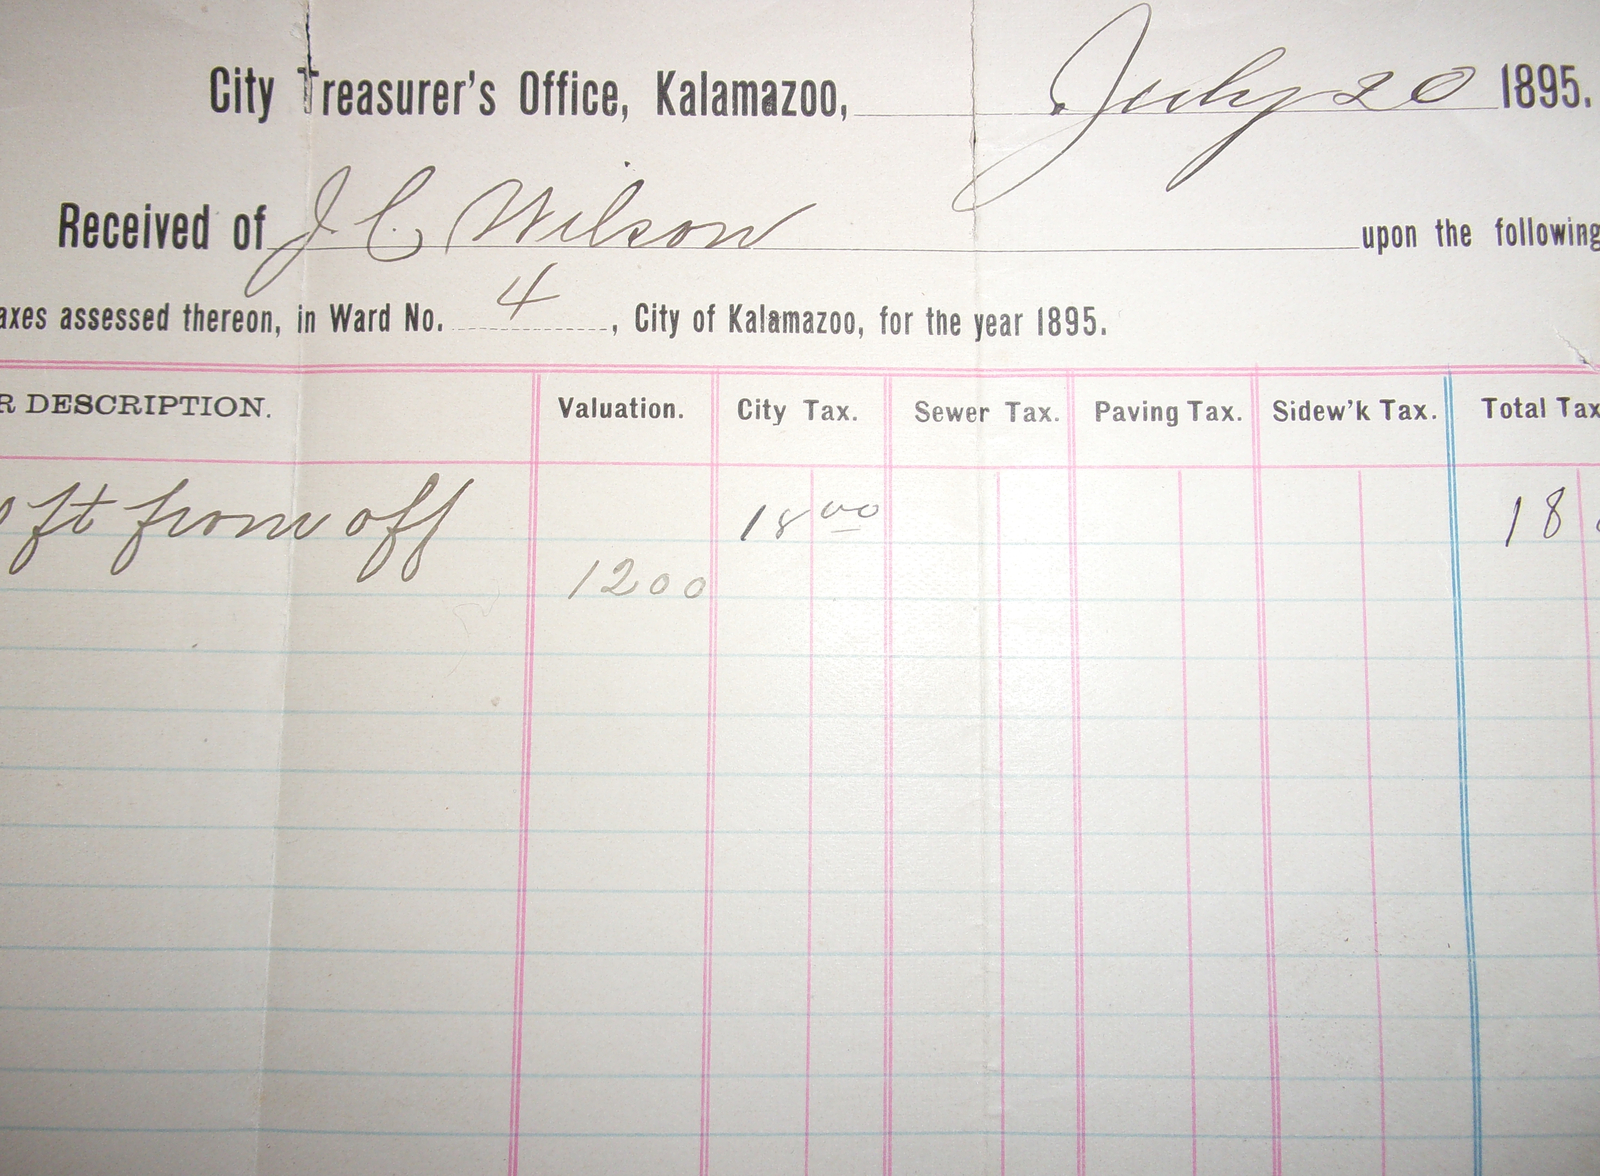 City Treasurer's Office, Kalamazoo, July 20 1895.
Received of J C Wilson upon the following
axes assessed thereon, in Ward No. 4, City of Kalamazoo, for the year 1895.
R DESCRIPTION. Valuation. City Tax. Sewer Tax. Paving Tax. Sidew'k Tax. Total Tax
ft from off 18 00 18
1200